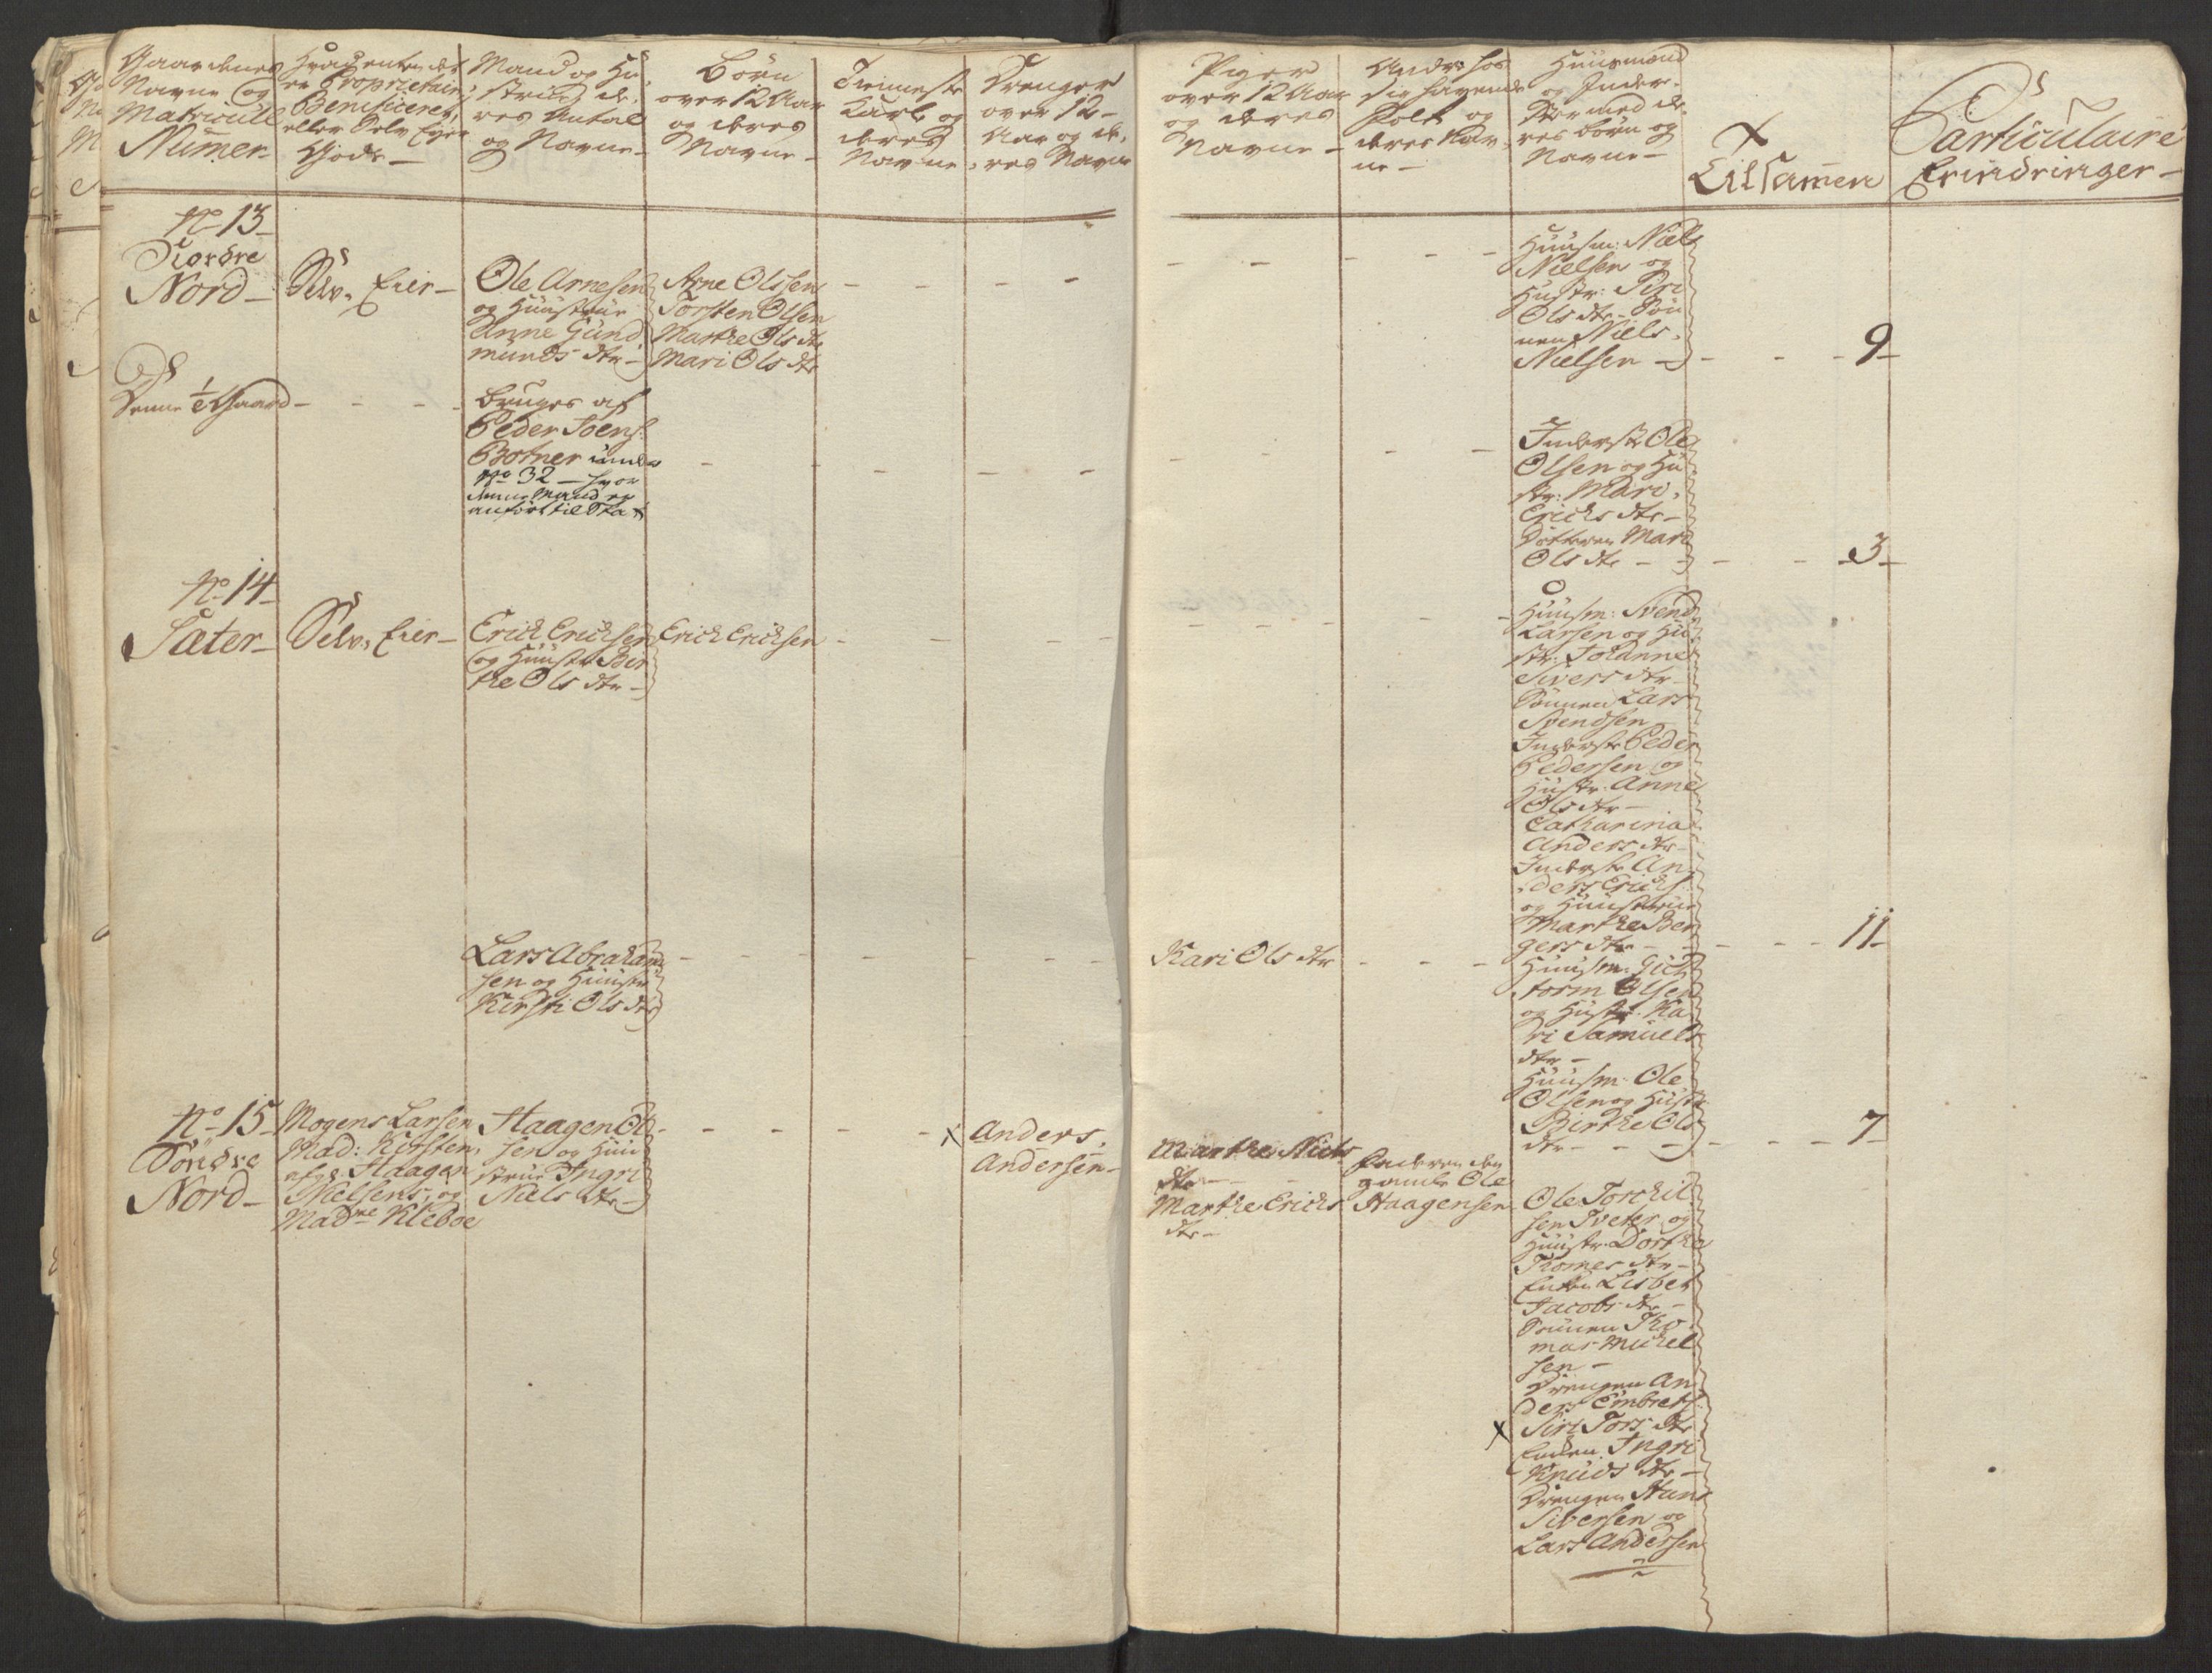 Gaardenes
Navne og
Matricull
Numer
Hvad enten det
er Proprietair,
Beneficeret,
eller Selv Eyer
Gods —
Mand og Hu-
strue, de-
res Antal
og Navne —
Børn
over 12 Aar
og deres
Navne —
Tienneste
Karle og
deres
Navne
Drenger
over 12 —
Aar og de-
res Navne
Piger
over 12 Aar
og deres
Navne —
Andre hos
sig havende
Folk og
deres Nav-
ne —
Huusmænd
og Inder-
ster med de-
res børn og
Navne —
Tilsamen
Particulaire
Erindringer —
No 13
Nordre
Nord —
Selv Eier —
Ole Arnesen
og Huustrue
Anne Gund
munds dtr —
Arne Olssen
Torsten Olsen
Marthe Ols dtr
Mari Ols dtr
Huusm: Niels
Nielsen og
Hustr: Siri
Ols dtr — Søn
nen Niels
Nielsen —
9
Denne ½ Gaard —
bruges af
Peder Joens:
Botner under
No 32 — hvor
denne Mand er
anført til Skat
Inderste Ole
Olsen og Hu
str: Mari
Ericks dtr —
Datteren Mari
Ols dtr —
3
No 14
Sæter —
Selv Eier —
Erick Ericksen
og Huustr Bir
the Ols dtr —
Erick Ericksen
Huusm: Svend
Larsen og Hu
str: Johanne
Sivers dtr —
Sønnen Lars
Svendsen
Inderste Peder
Pedersen og
Hustr: Anne
Ols dtr —
Catharina
Anders dtr —
Inderste An
ders Ericks:
og Huustrue
Marthe Ber
gers dtr —
11
Lars Abraham
sen og Huustr
Kirsti Ols dtr
Kari Ols dtr
Huusm: Gul
torm Olsen
og Hustr: Ka
ri Samuels
dtr —
Huusm: Ole
Olsen og Hustr
Birthe Ols
dtr —
7
No 15
Søndre
Nord —
Mogens Larsen
Mad: Kirsten,
afg: Haagen
Nielsens, og
Madme Kleboe
Haagen Ol
sen og Huu
strue Ingri
Niels dtr —
x Anders
Andersen —
Marthe Niels
dtr —
Marthe Ericks
dtr —
Faderen den
gamle Ole
Haagensen
Ole Torckil
sen Tveter og
Huustr: Dorthe
Thomes dtr —
Enken Lisbet
Jacobs dtr —
Sønnen Tho
mas Michel
sen —
Drengen An
ders Embrets:
x Siri Tors dtr
Enken Ingri
Knuds dtr —
Drengen Hans
Siversen og
Lars Andersen